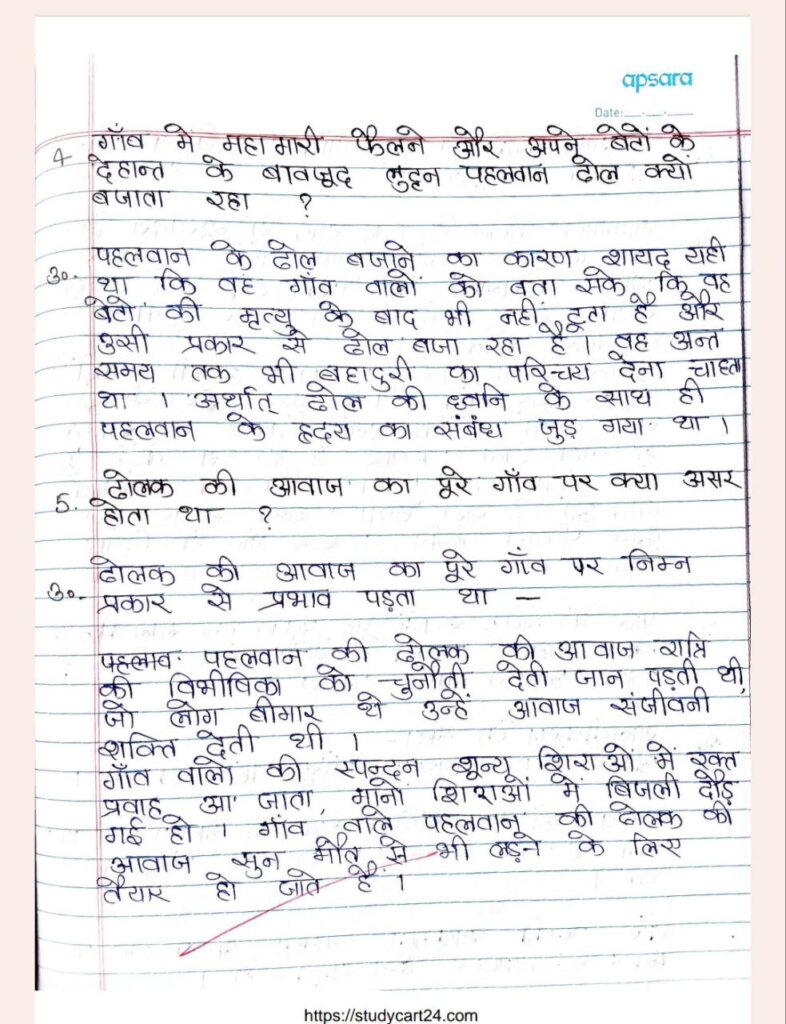 apsara
Date:
4 गाँव मे महामारी फैलने और अपने बेटों के
देहान्त के बावजूद लुट्टन पहलवान ढोल क्यों
बजाता रहा ?
उ०. पहलवान के ढोल बजाने का कारण शायद यही
था कि वह गाँव वालों को बता सके कि वह
बेटो की मृत्यु के बाद भी नहीं टूटा है और
उसी प्रकार से ढोल बजा रहा है । वह अन्त
समय तक भी बहादुरी का परिचय देना चाहता
था । अर्थात् ढोल की ध्वनि के साथ ही
पहलवान के हृदय का संबंध जुड़ गया था ।
5. ढोलक की आवाज का पूरे गाँव पर क्या असर
होता था ?
उ०- ढोलक की आवाज का पूरे गाँव पर निम्न
प्रकार से प्रभाव पड़ता था –
पहलाव पहलवान की ढोलक की आवाज रात्रि
की विभीषिका को चुनौती देती जान पड़ती थी,
जो लोग बीमार थे उन्हें आवाज संजीवनी
शक्ति देती थी ।
गाँव वालो की स्पन्दन शून्य शिराओं में रक्त
प्रवाह आ जाता, मानो शिराओं में बिजली दौड़
गई हो । गाँव वाले पहलवान की ढोलक की
आवाज सुन मौत से भी लड़ने के लिए
तैयार हो जाते है ।
https://studycart24.com